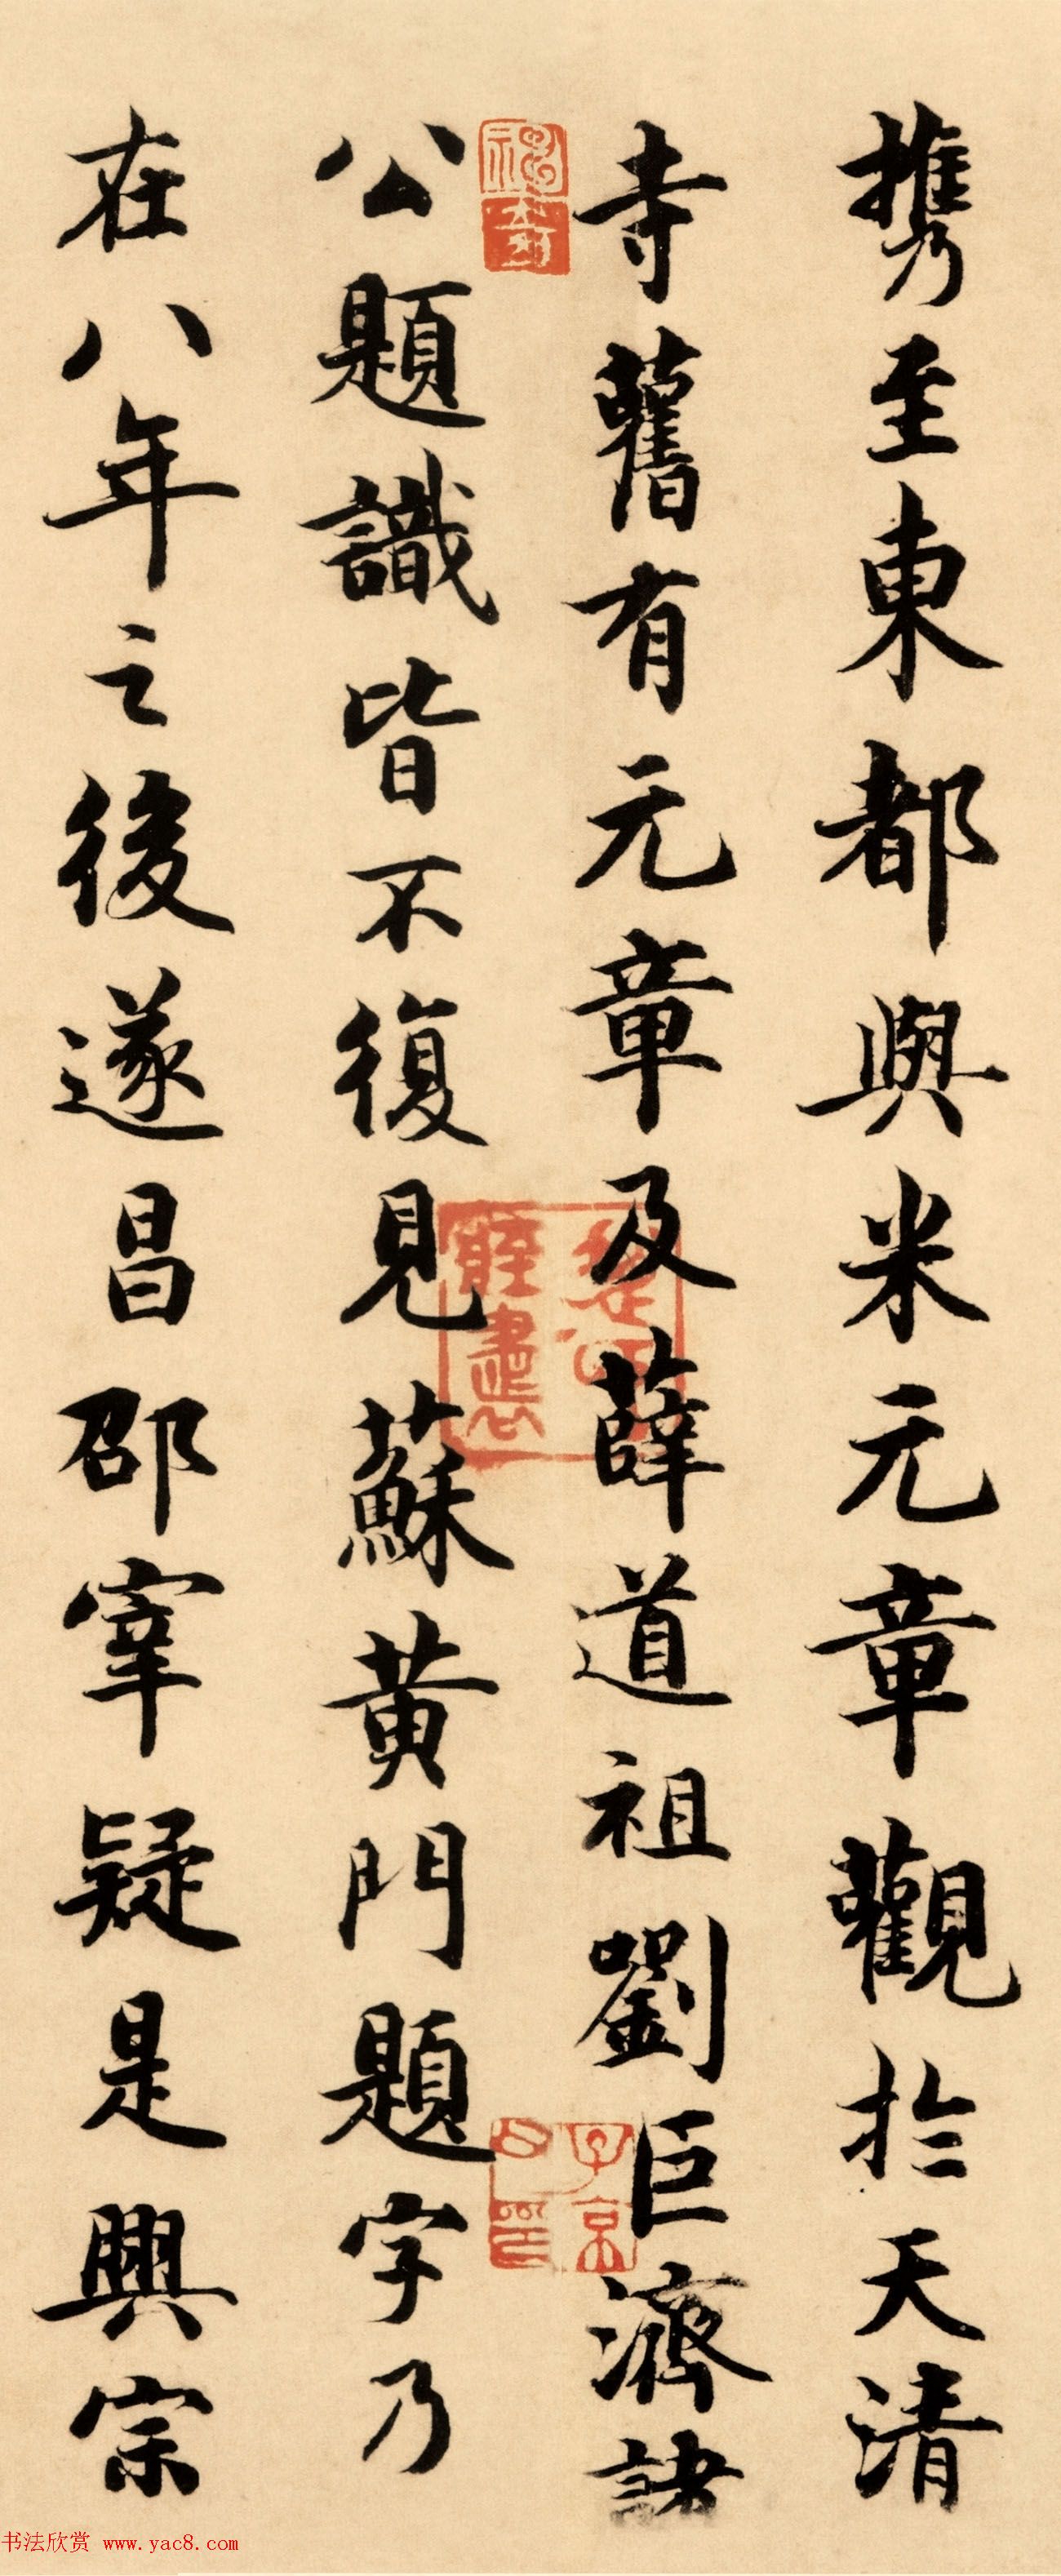 携至東都與米元章觀於天清
寺舊有元章及薛道祖劉巨濟諸
公題識皆不復見蘇黃門題字乃
在八年之後遂昌邵宰疑是興宗
子京
書法欣赏 www.yac8.com